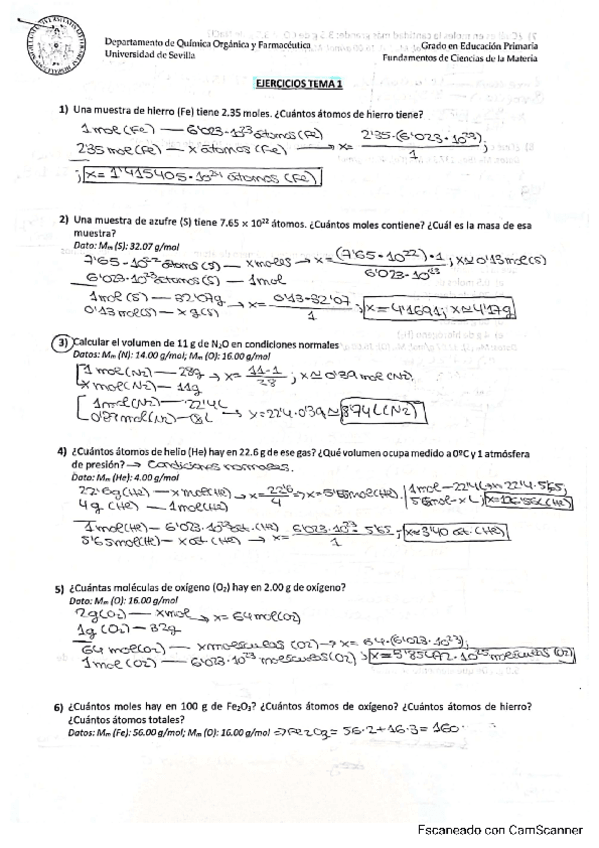 Departamento de Química Orgánica y Farmacéutica
Universidad de Sevilla
Grado en Educación Primaria
Fundamentos de Ciencias de la Materia
EJERCICIOS TEMA 1
1) Una muestra de hierro (Fe) tiene 2,35 moles. ¿Cuántos átomos de hierro tiene?
1 mol (Fe) — 6'023·10²³ átomos (Fe)
2'35 mol (Fe) — x átomos (Fe) → x = 2'35·(6'023·10²³) / 1 ;
; x = 1'415405·10²⁴ átomos (Fe)
2) Una muestra de azufre (S) tiene 7.65 x 10²² átomos. ¿Cuántos moles contiene? ¿Cuál es la masa de esa
muestra?
Dato: Mₘ (S): 32.07 g/mol
7'65·10²² átoms (S) — x moles → x = (7'65·10²²)·1 / 6'023·10²³ ; x ≃ 0'13 mol (S)
6'023·10²³ átoms (S) — 1 mol
1 mol (S) — 32'07g
0'13 mol (S) — x g (S) → x = 0'13·32'07 / 1 ; x = 4'1691; x ≃ 4'17g
3) Calcular el volumen de 11 g de N₂O en condiciones normales
Datos: Mₘ (N): 14.00 g/mol; Mₘ (O): 16.00 g/mol
1 mol (N2) — 28g → x = 11·1 / 28 ; x ≃ 0'39 mol (N2)
x mol (N2) — 11g
1 mol (N2) — 22'4L
→ x = 22'4·0'39 ≃ 8'74 L (N2)
4) ¿Cuántos átomos de helio (He) hay en 22.6 g de ese gas? ¿Qué volumen ocupa medido a 0ºC y 1 atmósfera
de presión? → Condiciones normales.
Dato: Mₘ (He): 4.00 g/mol
22'6g (He) — x mol (He) → x = 22'6 / 4 → x = 5'65 mol (He).
4g (He) — 1 mol (He)
1 mol (He) — 6'023·10²³ at. (He)
5'65 mol (He) — x at (He) → x = 6'023·10²³·5'65 / 1
5) ¿Cuántas moléculas de oxígeno (O₂) hay en 2.00 g de oxígeno?
Dato: Mₘ (O): 16.00 g/mol
2g (O2) — x mol → x = 64 mol (O2)
1g (O2) — 32g
64 mol (O2) — x moleculas (O2) → x = 64·(6'023·10²³);
1 mol (O2) — 6'023·10²³ moleculas (O2)
6) ¿Cuántos moles hay en 100 g de Fe₂O₃? ¿Cuántos átomos de oxígeno? ¿Cuántos átomos de hierro?
¿Cuántos átomos totales?
Datos: Mₘ (Fe): 56.00 g/mol; Mₘ (O): 16.00 g/mol ⇒ Fe2O3 = 56·2+16·3 = 160
Escaneado con CamScanner